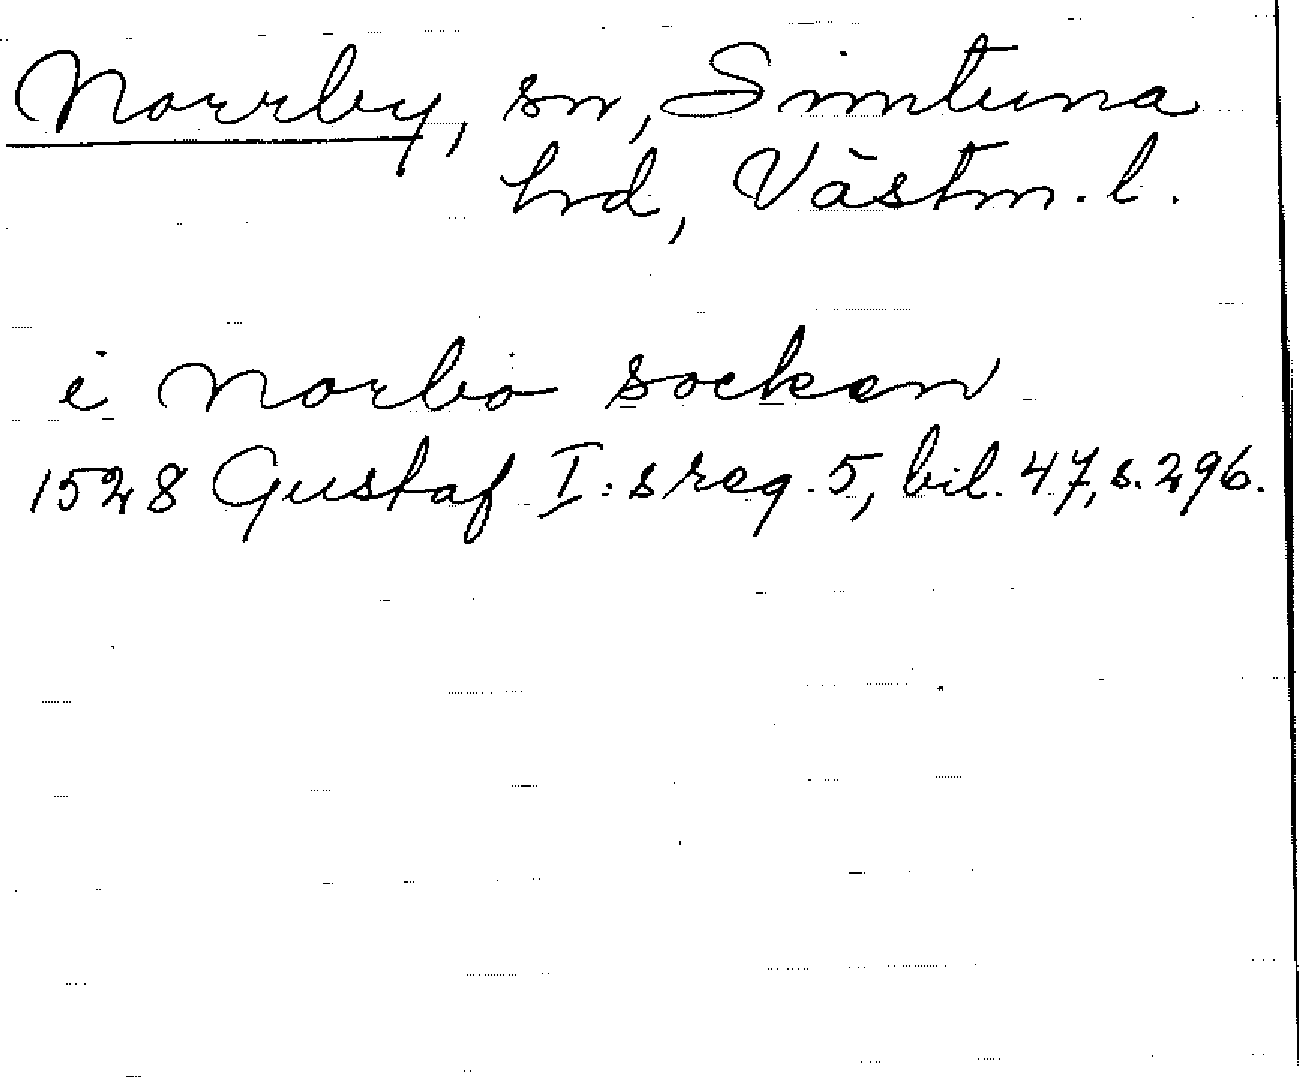 Norrby, sn, Simtuna
hd, Västm. l.
i Norbo socken
1528 Gustaf I:s reg. 5, bil. 47, s. 296.